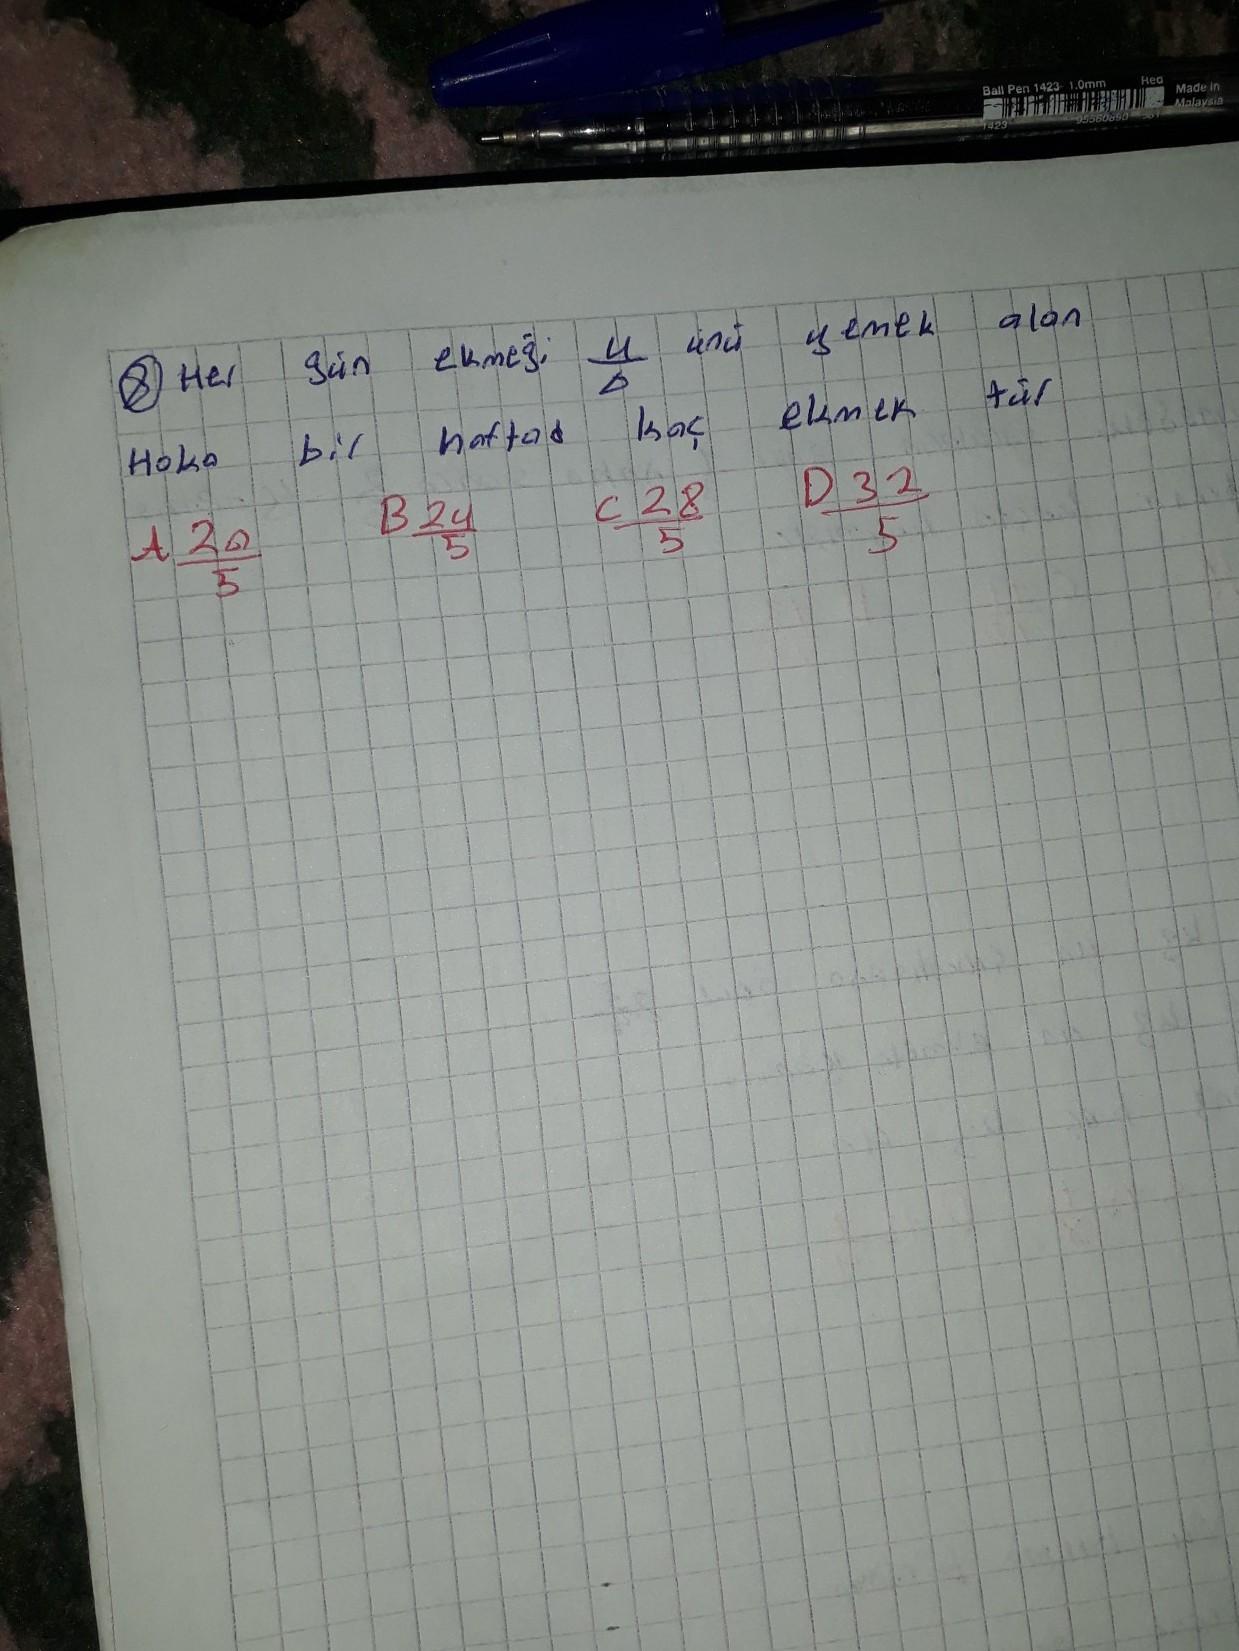 Ball Pen 1423 1.0mm Red
Made in
Malaysia
1423
95560890
8) Her gün ekmeği 4/5 ünü yemek alan
Hoka bir haftad kaç ekmek tür
A 20/5 B 24/5 C 28/5 D 32/5